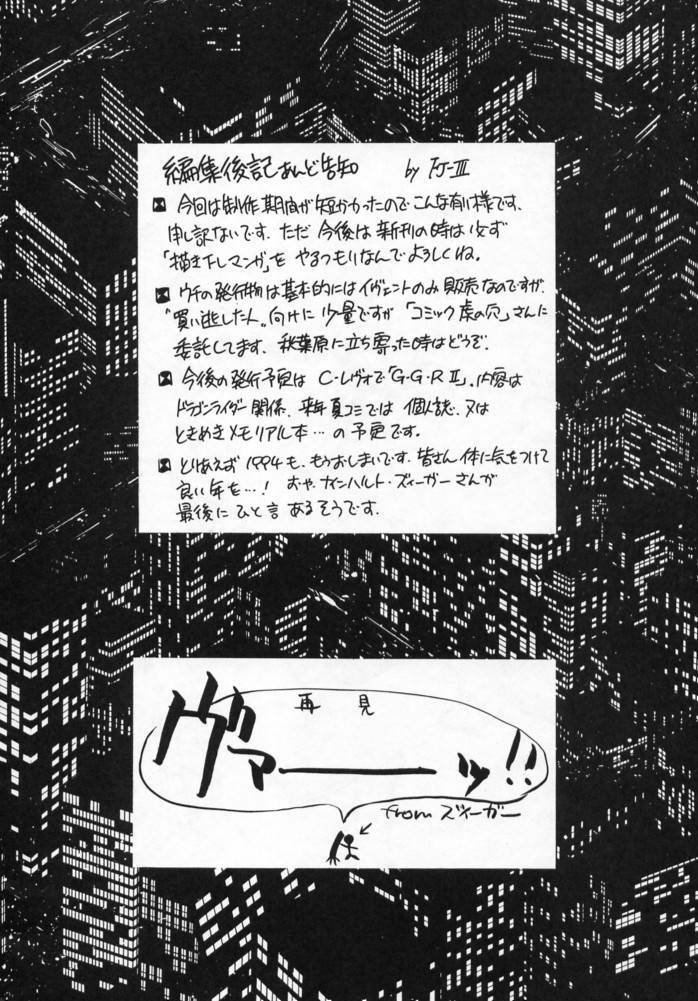 編集後記あんど告知 by FJ-III
今回は制作期間が短かかったのでこんな有り様です、
申し訳ないです。ただ 今後は新刊の時は必ず
「描き下しマンガ」をやるつもりなんでよろしくね。
ウチの発行物は基本的にはイヴェントのみ販売なのですが、
"買い逃した人"向けに少量ですが「コミック虎の穴」さんに
委託してます、秋葉原に立ち寄った時はどうぞ、
今後の発行予定は C・レヴォで「G・G・R II」、内容は
ドラゴンライダー関係、来年夏コミでは個人誌、又は
ときめきメモリアル本…の予定です。
とりあえず1994も、もうおしまいです、皆さん体に気をつけて
良い年を…! おや、ナインハルト・ズィーガーさんが
最後にひと言あるそうです。
再見
ヴァーーッ!!
from ズィーガー